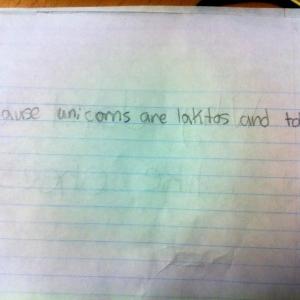 ause unicorns are laktos and to